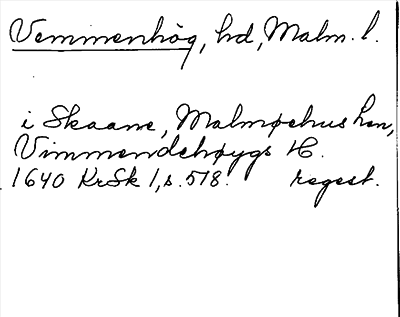 Vemmenhög, hd, Malm. l.
i Skaane, Malmøehus Len,
Vimmendehøygs H.
1640 KrSk 1, s. 578. regest.